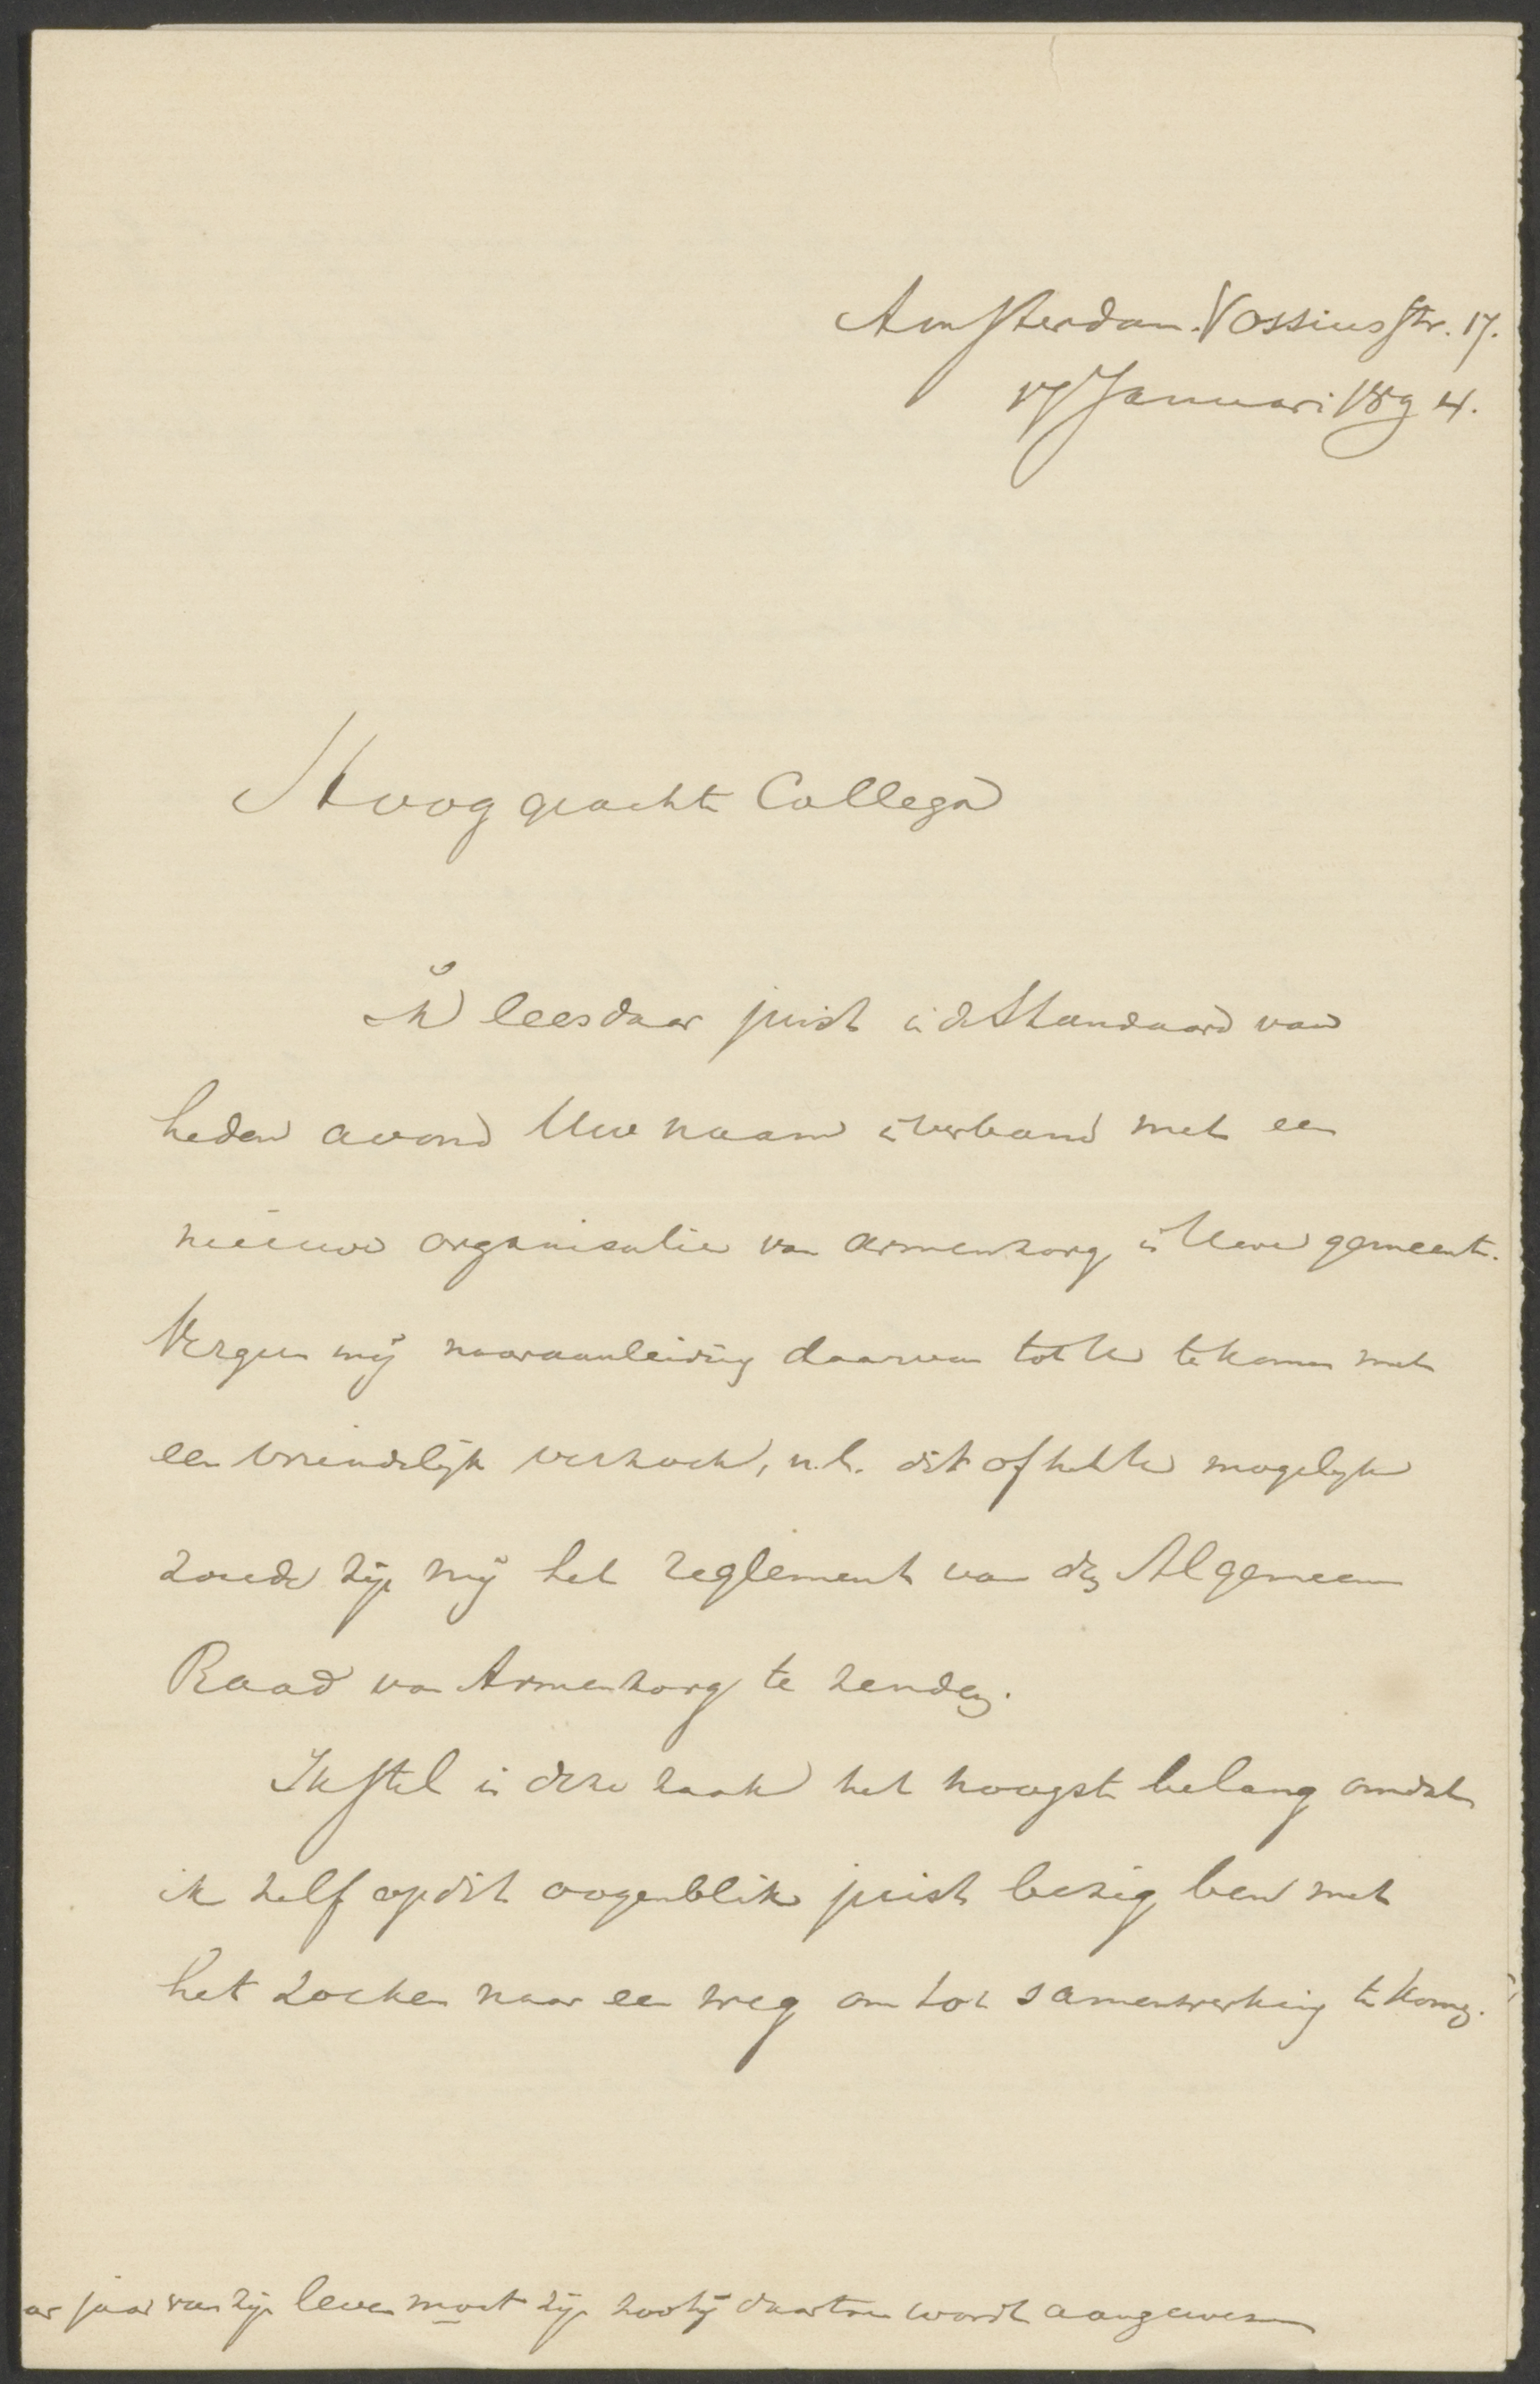 Amsterdam. Vossiusstr. 17.
17 Januari 1894.
Hooggeachte Collega
Ik lees daar juist in de Standaard van
heden avond Uw naam in verband met een
nieuwe organisatie van armenzorg in Uwe gemeente.
Vergun mij naar aanleiding daarvan tot U te komen met
een vriendelijk verzoek, n.l. dit of het U mogelijk
zoude zijn mij het reglement van den Algemeenen
Raad van Armenzorg te zenden.
Ik stel in deze zaak het hoogste belang omdat
ik zelf op dit oogenblik juist bezig ben met
het zoeken naar een weg om tot samenwerking te komen.
jaar van zijn leven moet zijn zoo hij daartoe wordt aangewezen